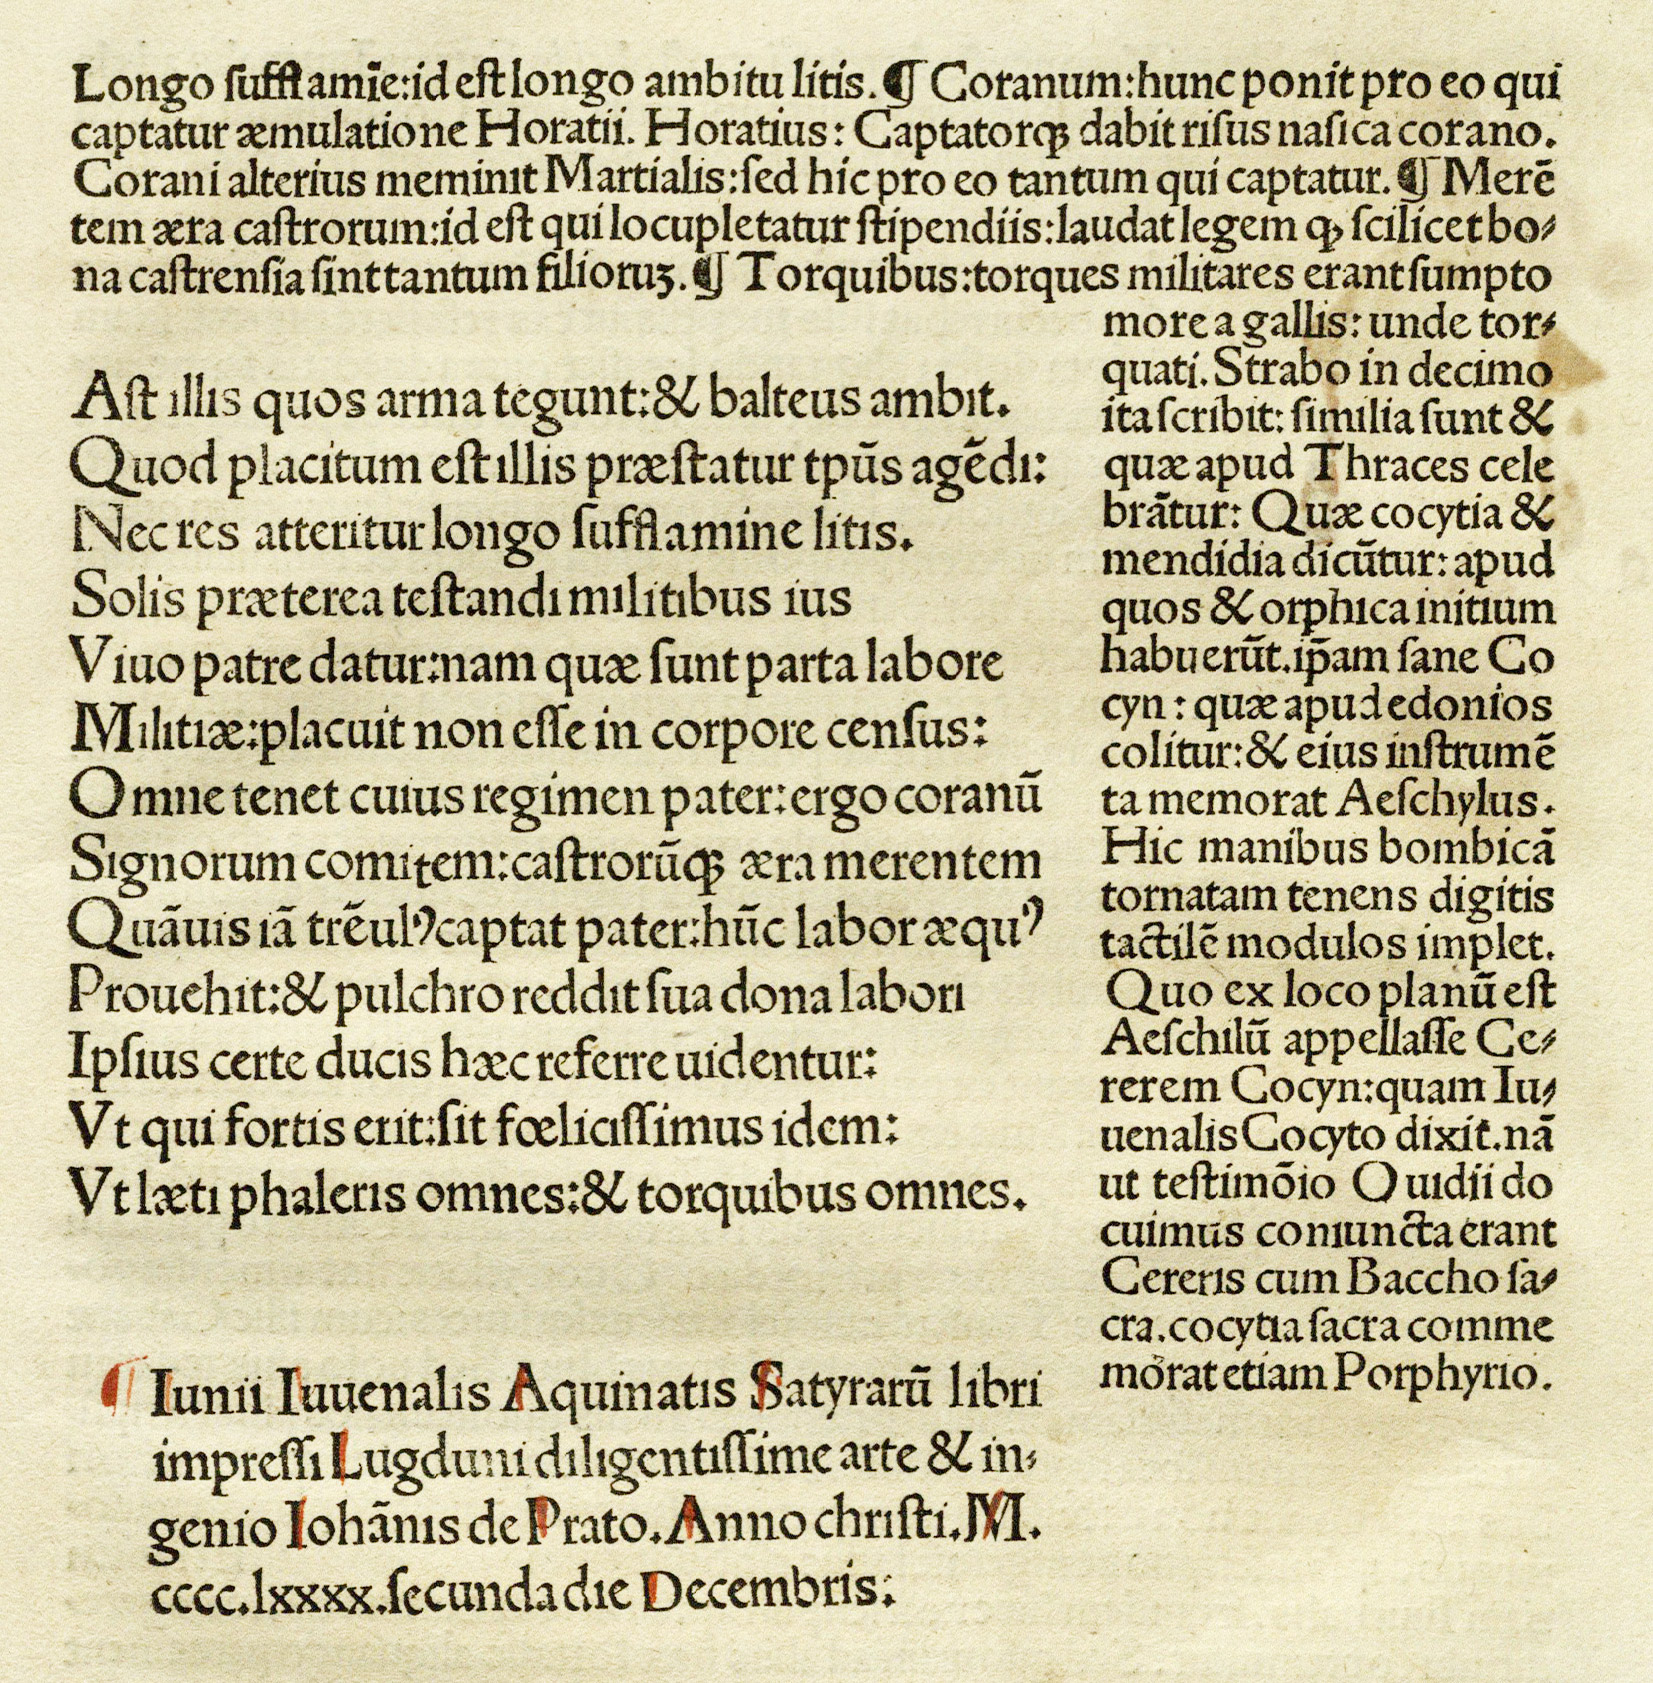 Longo ſufflamīe:id eſt longo ambitu litis.¶ Coranum:hunc ponit pro eo qui
captatur æmulatione Horatii. Horatius: Captatorꝙ dabit riſus naſica corano.
Corani alterius meminit Martialis:ſed hic pro eo tantum qui captatur.¶ Merē
tem æra caſtrorum:id eſt qui locupletatur ſtipendiis:laudat legem ꝙ ſcilicet bo⸗
na caſtrenſia ſint tantum filioruꝫ.¶ Torquibus:torques militares erant ſumpto
more a gallis: unde tor⸗
quati. Strabo in decimo
ita ſcribit: ſimilia ſunt &
quæ apud Thraces cele
brātur: Quæ cocytia &
mendidia dicūtur: apud
quos & orphica initium
habuerūt.ip̄am ſane Co
cyn : quæ apud edonios
colitur:& eius inſtrumē
ta memorat Aeſchylus.
Hic manibus bombicā
tornatam tenens digitis
tactilē modulos implet.
Quo ex loco planū eſt
Aeſchilū appellaſſe Ce⸗
rerem Cocyn:quam Iu⸗
uenalis Cocyto dixit.nā
ut teſtimōio Ouidii do
cuimus coniuncta erant
Cereris cum Baccho ſa⸗
cra.cocytia ſacra comme
morat etiam Porphyrio.
Aſt illis quos arma tegunt:& balteus ambit.
Quod placitum eſt illis præſtatur tpūs agēdi:
Nec res atteritur longo ſufflamine litis.
Solis præterea teſtandi militibus ius
Viuo patre datur:nam quæ ſunt parta labore
Militiæ:placuit non eſſe in corpore cenſus:
Omne tenet cuius regimen pater:ergo coranū
Signorum comitem:caſtrorūꝙ æra merentem
Quāuis iā trēulꝰcaptat pater:hūc labor æquꝰ
Prouehit:& pulchro reddit ſua dona labori
Ipſius certe ducis hæc referre uidentur:
Vt qui fortis erit:ſit fœliciſſimus idem:
Vt læti phaleris omnes:& torquibus omnes.
¶ Iunii Iuuenalis Aquinatis Satyrarū libri
impreſſi Lugduni diligentiſſime arte & in⸗
genio Iohānis de Prato.Anno chriſti.M.
cccc.lxxxx.ſecunda die Decembris: